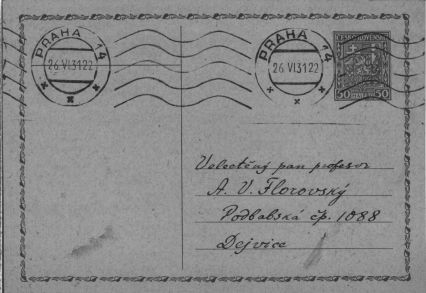 PRAHA 14
26.VI.31.22
PRAHA 14
26.VI.31.22
ČESKOSLOVENSKO
50 50
Velectěný pan profesor
A. V. Florovský
Podbabská čp. 1088
Dejvice